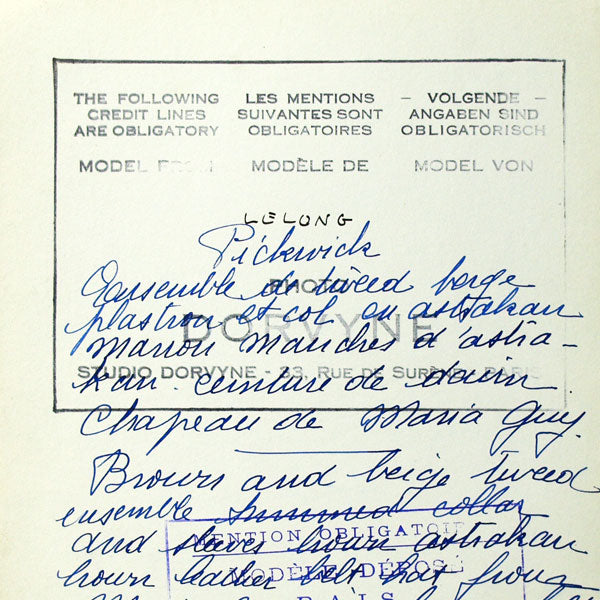 THE FOLLOWING CREDIT LINES ARE OBLIGATORY
LES MENTIONS SUIVANTES SONT OBLIGATOIRES
– VOLGENDE – ANGABEN SIND OBLIGATORISCH
MODEL FROM
MODÈLE DE
MODEL VON
LELONG
Pickwick
ensemble de tweed beige
PHOTO
plastron et col en astrakan
DORVYNE
marron manches d'astra-
STUDIO DORVYNE - 33, RUE DE SURÈNE - PARIS
kan. ceinture de daim
Chapeau de Maria Guy.
Brown and beige tweed
ensemble trimmed collar
MENTION OBLIGATOIRE
and sleeves brown astrakan
MODÈLE DÉPOSÉ
brown leather belt hat from